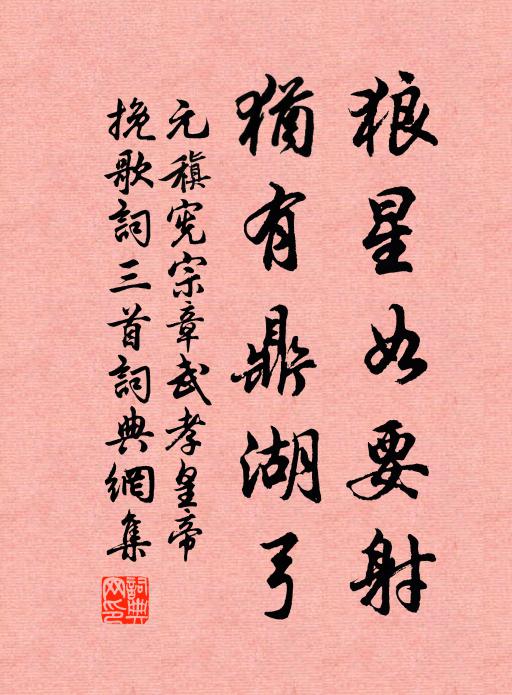 狼星如要射
猶有鼎湖弓
元稹憲宗章武孝皇帝
挽歌詞三首詞典網集
詞典網印